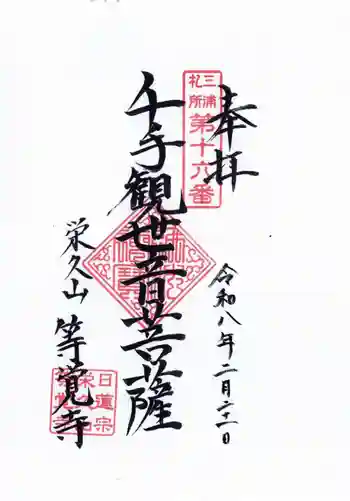 奉拝
三浦
札所
第十六番
千手観世音菩薩
令和八年二月二十一日
栄久山 等覚寺
日蓮宗